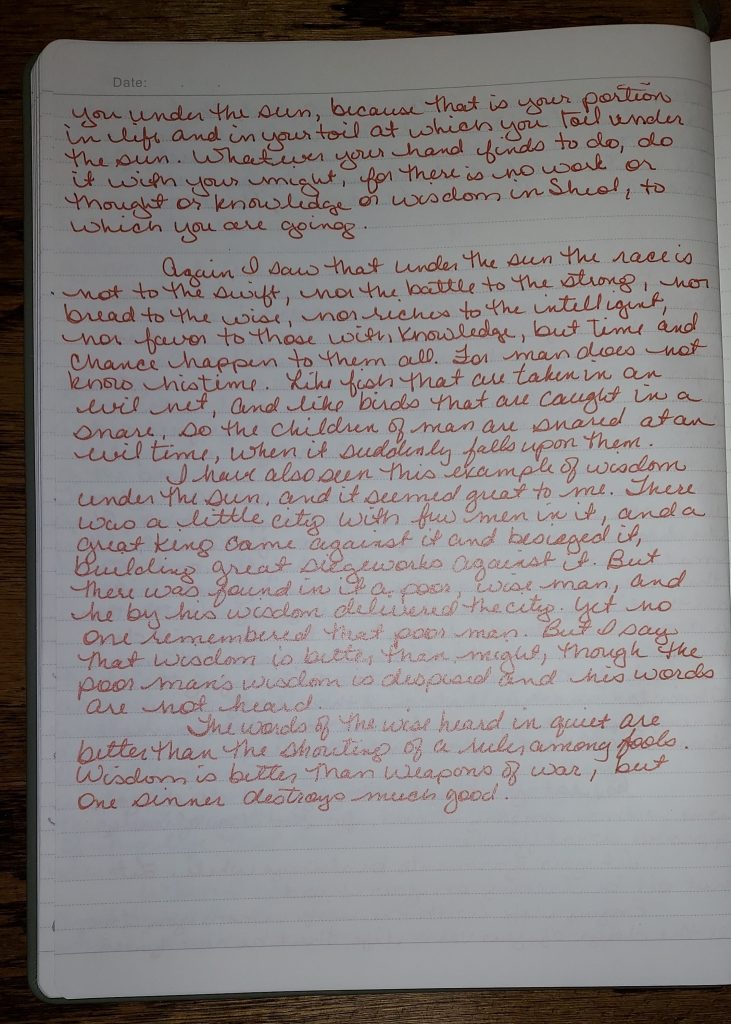 Date:
you under the sun, because that is your portion
in life and in your toil at which you toil under
the sun. Whatever your hand finds to do, do
it with your might, for there is no work or
thought or knowledge or wisdom in Sheol, to
which you are going.
Again I saw that under the sun the race is
not to the swift, nor the battle to the strong, nor
bread to the wise, nor riches to the intelligent,
nor favor to those with knowledge, but time and
chance happen to them all. For man does not
know his time. Like fish that are taken in an
evil net, and like birds that are caught in a
snare, so the children of man are snared at an
evil time, when it suddenly falls upon them.
I have also seen this example of wisdom
under the sun, and it seemed great to me. There
was a little city with few men in it, and a
great king came against it and besieged it,
building great siegeworks against it. But
there was found in it a poor, wise man, and
he by his wisdom delivered the city. Yet no
one remembered that poor man. But I say
that wisdom is better than might, though the
poor man's wisdom is despised and his words
are not heard.
The words of the wise heard in quiet are
better than the shouting of a ruler among fools.
Wisdom is better than weapons of war, but
one sinner destroys much good.